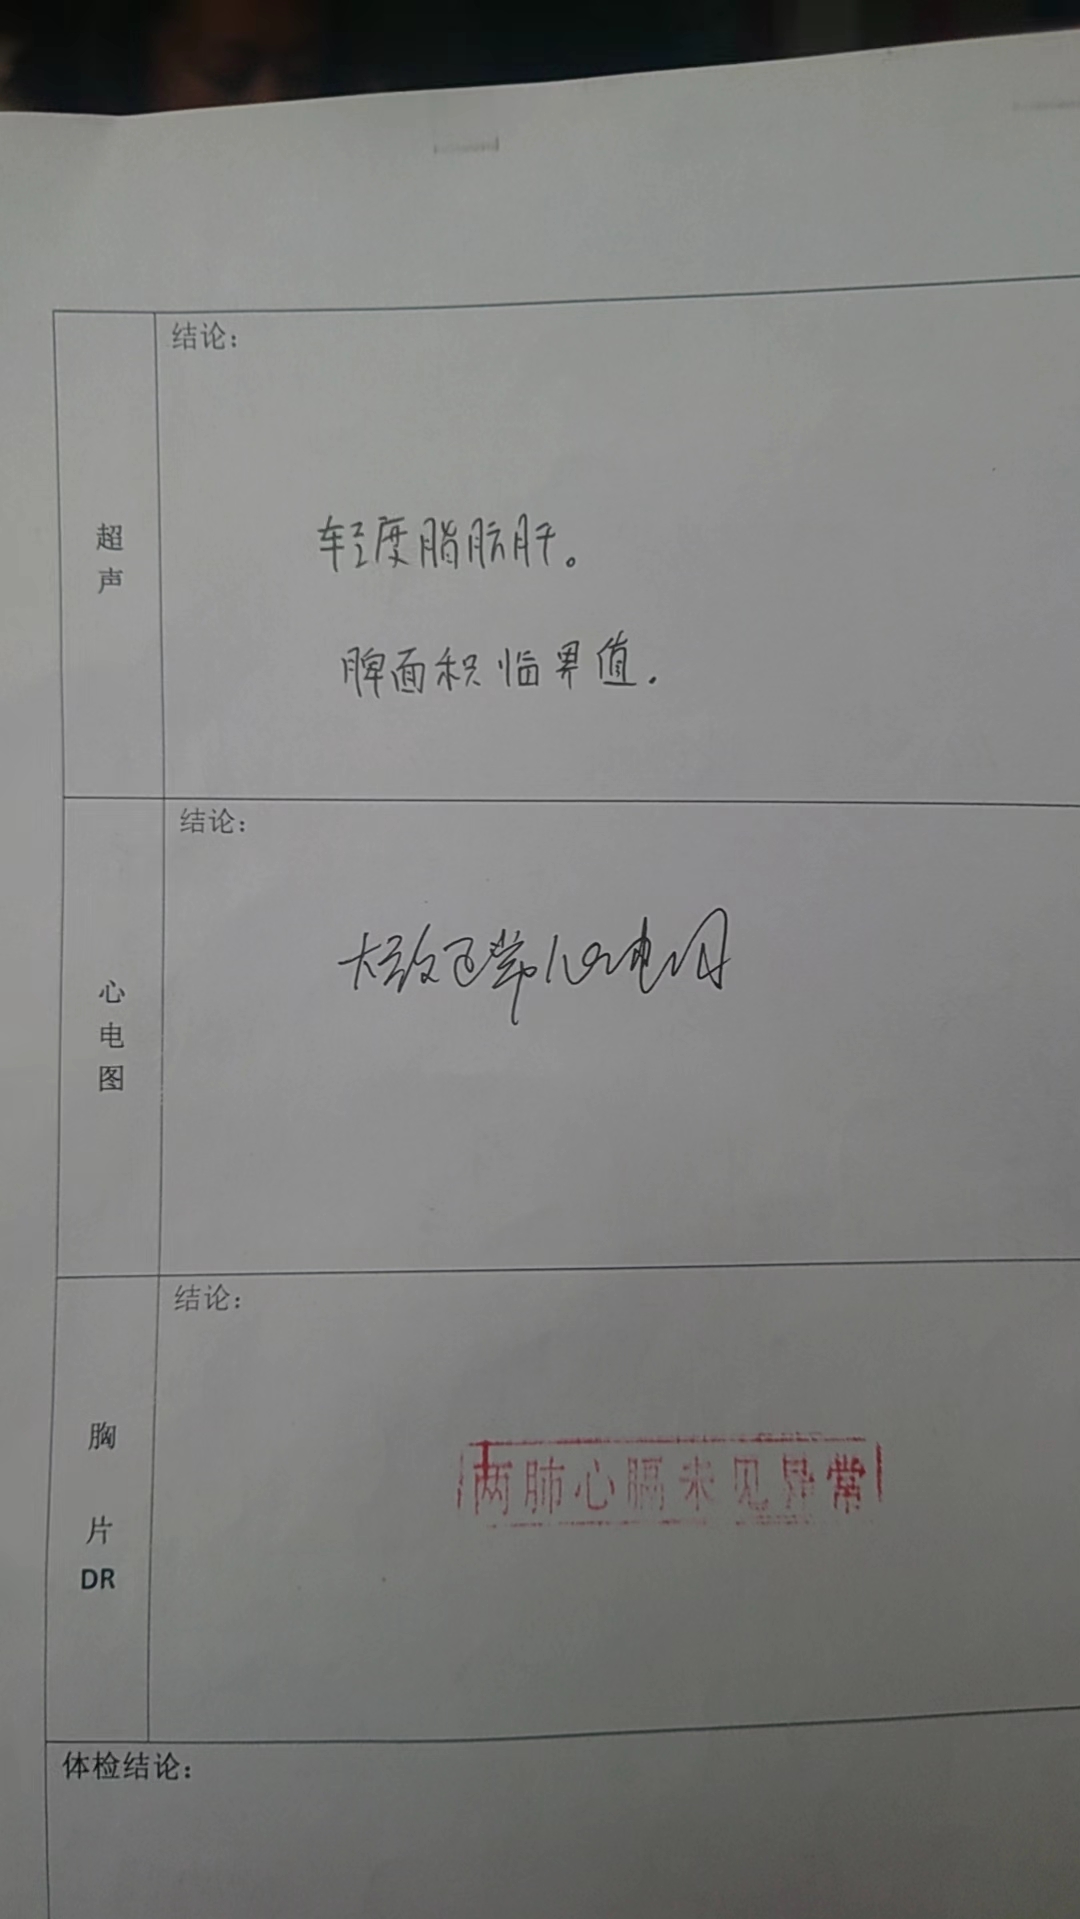 超声
结论：
轻度脂肪肝。
脾面积临界值.
心电图
结论：
大致正常心电图
胸片DR
结论：
两肺心膈未见异常
体检结论：